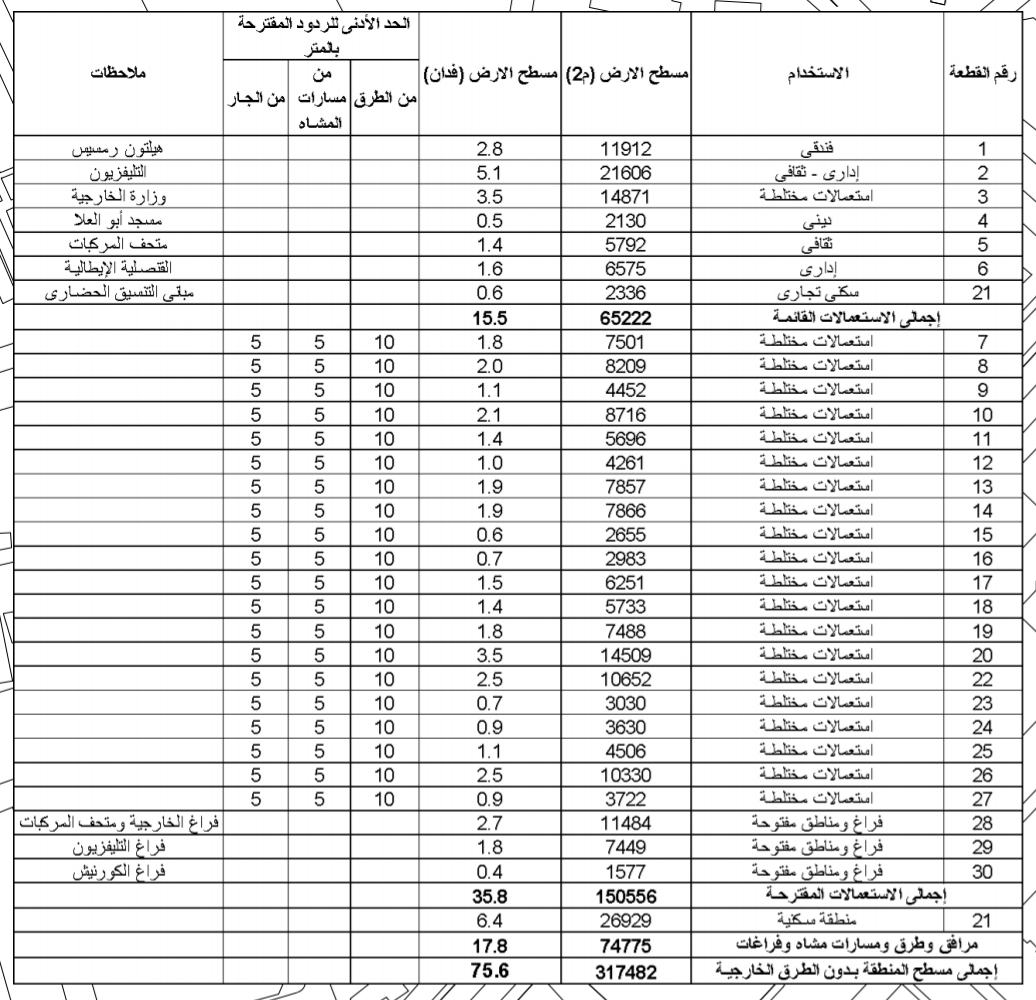 رقم القطعة الاستخدام مسطح الارض (م2) مسطح الارض (فدان) الحد الأدنى للردود المقترحة بالمتر ملاحظات
من الطرق من مسارات المشاه من الجار
1 فندقى 11912 2.8 هيلتون رمسيس
2 إدارى - ثقافى 21606 5.1 التليفزيون
3 استعمالات مختلطة 14871 3.5 وزارة الخارجية
4 دينى 2130 0.5 مسجد أبو العلا
5 ثقافى 5792 1.4 متحف المركبات
6 إدارى 6575 1.6 القنصلية الإيطالية
21 سكنى تجارى 2336 0.6 مبانى التنسيق الحضارى
إجمالى الاستعمالات القائمة 65222 15.5
7 استعمالات مختلطة 7501 1.8 10 5 5
8 استعمالات مختلطة 8209 2.0 10 5 5
9 استعمالات مختلطة 4452 1.1 10 5 5
10 استعمالات مختلطة 8716 2.1 10 5 5
11 استعمالات مختلطة 5696 1.4 10 5 5
12 استعمالات مختلطة 4261 1.0 10 5 5
13 استعمالات مختلطة 7857 1.9 10 5 5
14 استعمالات مختلطة 7866 1.9 10 5 5
15 استعمالات مختلطة 2655 0.6 10 5 5
16 استعمالات مختلطة 2983 0.7 10 5 5
17 استعمالات مختلطة 6251 1.5 10 5 5
18 استعمالات مختلطة 5733 1.4 10 5 5
19 استعمالات مختلطة 7488 1.8 10 5 5
20 استعمالات مختلطة 14509 3.5 10 5 5
22 استعمالات مختلطة 10652 2.5 10 5 5
23 استعمالات مختلطة 3030 0.7 10 5 5
24 استعمالات مختلطة 3630 0.9 10 5 5
25 استعمالات مختلطة 4506 1.1 10 5 5
26 استعمالات مختلطة 10330 2.5 10 5 5
27 استعمالات مختلطة 3722 0.9 10 5 5
28 فراغ ومناطق مفتوحة 11484 2.7 فراغ الخارجية ومتحف المركبات
29 فراغ ومناطق مفتوحة 7449 1.8 فراغ التليفزيون
30 فراغ ومناطق مفتوحة 1577 0.4 فراغ الكورنيش
إجمالى الاستعمالات المقترحة 150556 35.8
21 منطقة سكنية 26929 6.4
مرافق وطرق ومسارات مشاه وفراغات 74775 17.8
إجمالى مسطح المنطقة بدون الطرق الخارجية 317482 75.6